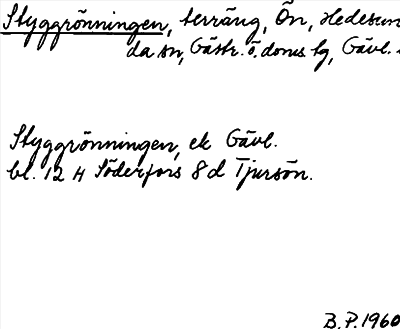 Styggrönningen, terräng, Ön, Hedesun
da sn, Gästr. ö. doms. bg, Gävl.
Styggrönningen, ek Gävl.
bl. 12 H Söderfors 8 d Tjursön.
B.P. 1960